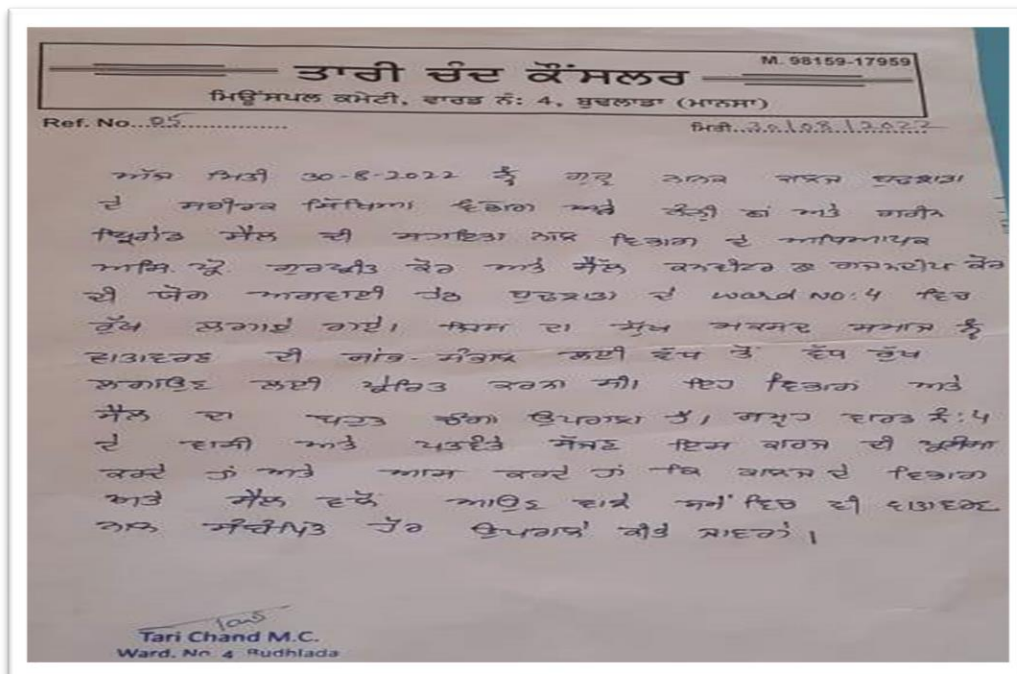 M. 98159-17959
ਤਾਰੀ ਚੰਦ ਕੌਂਸਲਰ
ਮਿਊਂਸਪਲ ਕਮੇਟੀ, ਵਾਰਡ ਨੰ: 4, ਬੁਢਲਾਡਾ (ਮਾਨਸਾ)
Ref. No. 05 ਮਿਤੀ 30/08/2022
ਅੱਜ ਮਿਤੀ 30-8-2022 ਨੂੰ ਗੁਰੂ ਨਾਨਕ ਕਾਲਜ ਬੁਢਲਾਡਾ
ਦੇ ਸਰੀਰਕ ਸਿੱਖਿਆ ਵਿਭਾਗ ਅਤੇ ਅਤੇ ਗਰੀਨ
ਬ੍ਰਿਗੇਡ ਸੈੱਲ ਦੀ ਸਹਾਇਤਾ ਨਾਲ ਵਿਭਾਗ ਦੇ ਅਧਿਆਪਕ
ਅਸਿ. ਪ੍ਰੋ. ਗੁਰਪ੍ਰੀਤ ਕੌਰ ਅਤੇ ਸੈੱਲ ਡਾ ਗਗਨਦੀਪ ਕੌਰ
ਦੀ ਯੋਗ ਅਗਵਾਈ ਹੇਠ ਬੁਢਲਾਡਾ ਦੇ ward NO: 4 ਵਿਚ
ਰੁੱਖ ਲਗਾਏ ਗਏ। ਜਿਸ ਦਾ ਮੁੱਖ ਮਕਸਦ ਸਮਾਜ ਨੂੰ
ਵਾਤਾਵਰਣ ਦੀ ਸਾਂਭ-ਸੰਭਾਲ ਲਈ ਵੱਧ ਤੋਂ ਵੱਧ ਰੁੱਖ
ਲਗਾਉਣ ਲਈ ਪ੍ਰੇਰਿਤ ਕਰਨਾ ਸੀ। ਇਹ ਵਿਭਾਗ ਅਤੇ
ਸੈੱਲ ਦਾ ਬਹੁਤ ਚੰਗਾ ਉਪਰਾਲਾ ਹੈ। ਸਮੂਹ ਵਾਰਡ ਨੰ: 4
ਦੇ ਵਾਸੀ ਅਤੇ ਪਤਵੰਤੇ ਸੱਜਣ ਇਸ ਕਾਰਜ ਦੀ ਪ੍ਰਸੰਸਾ
ਕਰਦੇ ਹਾਂ ਅਤੇ ਆਸ ਕਰਦੇ ਹਾਂ ਕਿ ਕਾਲਜ ਦੇ ਵਿਭਾਗ
ਅਤੇ ਸੈੱਲ ਵਲੋਂ ਆਉਣ ਵਾਲੇ ਸਮੇਂ ਵਿਚ ਵੀ ਵਾਤਾਵਰਣ
ਨਾਲ ਸੰਬੰਧਿਤ ਹੋਰ ਉਪਰਾਲੇ ਕੀਤੇ ਜਾਣਗੇ।
Tari Chand M.C.
Ward. No 4 Budhlada